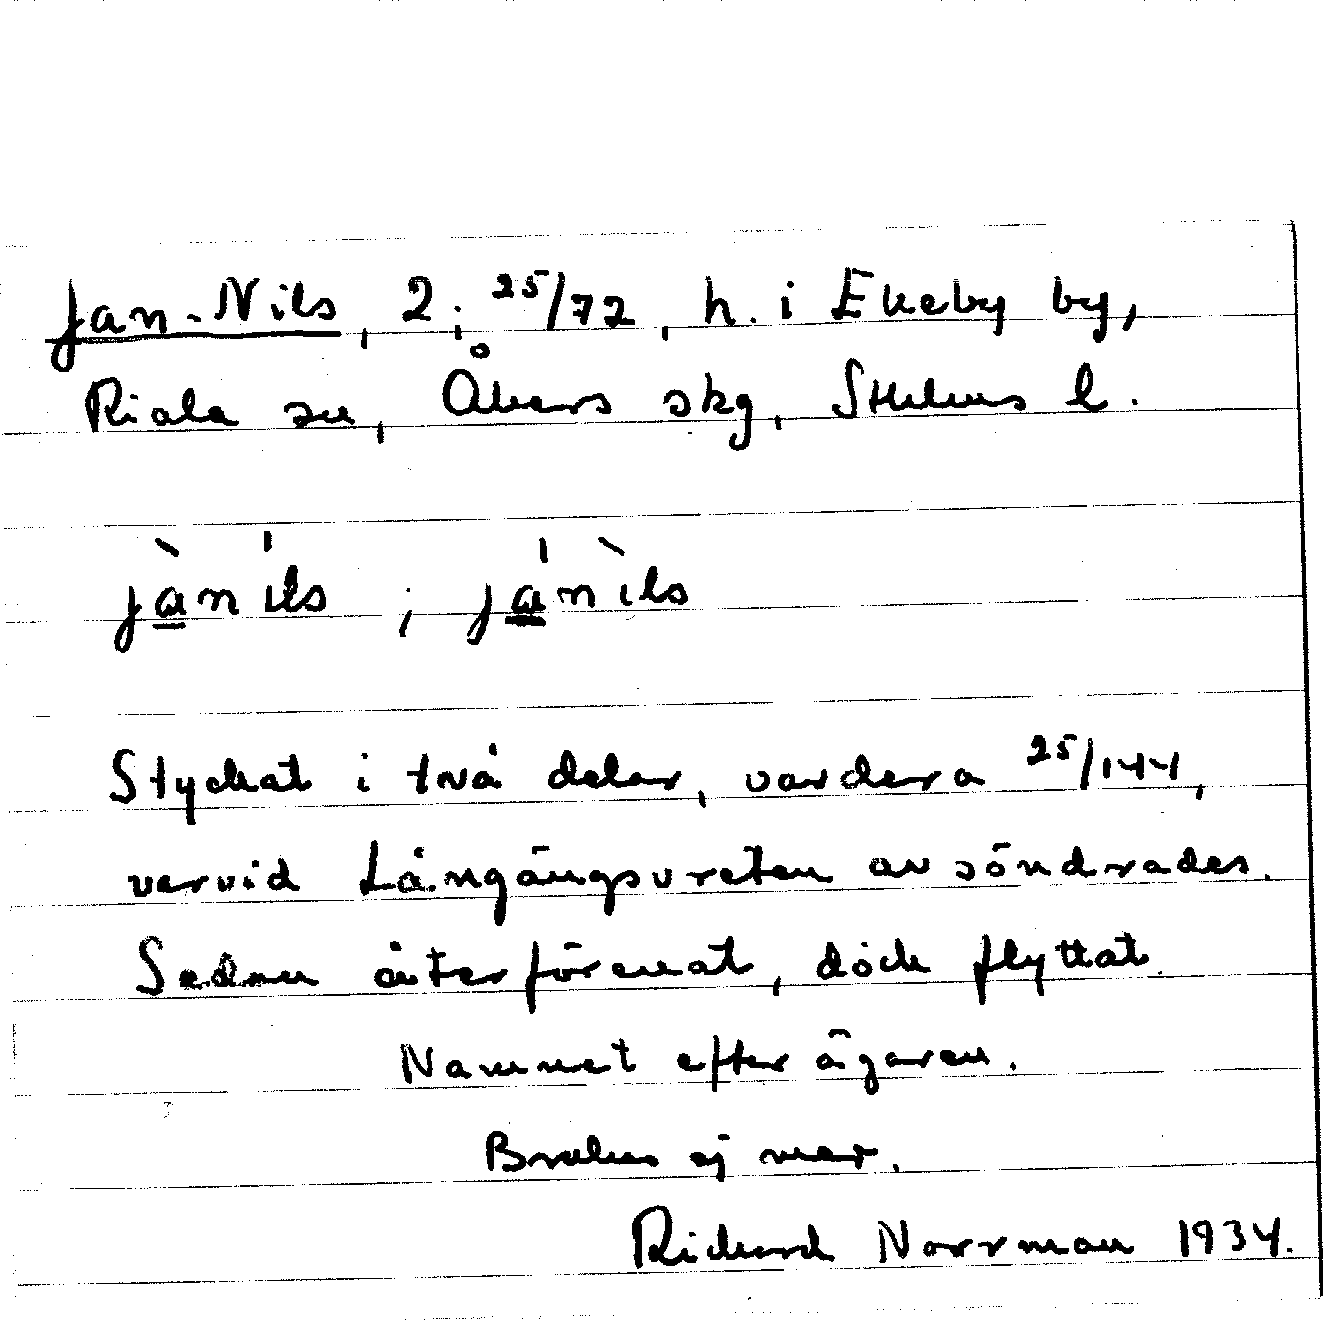 Jan-Nils, 2; 25/72, h. i Ekeby by,
Riala sn, Åkers skg, Sthlms l.
jàníls ; jánìls
Styckat i två delar, vardera 25/144,
varvid Långängsvreten avsöndrades.
Sedan återförenat, dock flyttat.
Namnet efter ägaren.
Brukas ej mer.
Richard Norrman 1934.